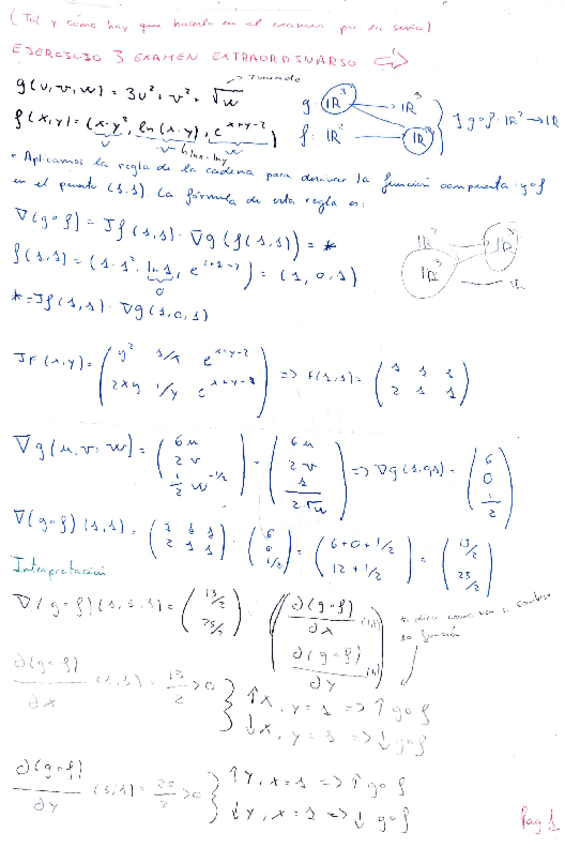 (Tal y cómo hay que hacerlo en el examen por la seria)
EJERCICIO 3 EXAMEN EXTRAORDINARIO
g(u,v,w) = 3u² + v² + √w
f(x,y) = (x·y², ln(x·y), e^(x+y-2))
lnx + lny
g: IR³ → IR
f: IR² → IR³
} g∘f: IR² → IR
• Aplicamos la regla de la cadena para derivar la función compuesta g∘f
en el punto (1,1). La fórmula de esta regla es:
∇(g∘f) = Jf(1,1) · ∇g(f(1,1)) = *
f(1,1) = (1·1², ln 1, e^(1+1-2)) = (1, 0, 1)
0
IR² IR³
IR³ IR
* = Jf(1,1) · ∇g(1,0,1)
JF(x,y) = ( y² 1/x e^(x+y-2)
2xy 1/y e^(x+y-2) ) => f(1,1) = ( 1 1 1
2 1 1 )
∇g(u,v,w) = ( 6u
2v
1/2 w^(-1/2) ) = ( 6u
2v
1/(2√w) ) => ∇g(1,0,1) = ( 6
0
1/2 )
∇(g∘f)(1,1) = ( 1 1 1
2 1 1 ) · ( 6
0
1/2 ) = ( 6+0+1/2
12+1/2 ) = ( 13/2
25/2 )
Interpretación
∇(g∘f)(1,1,1) = ( 13/2
25/2 ) = ( ∂(g∘f)/∂x (1,1)
∂(g∘f)/∂y (1,1) )
la función
∂(g∘f)/∂x (1,1) = 13/2 > 0 } ↑x, y=1 => ↑ g∘f
↓x, y=1 => ↓ g∘f
∂(g∘f)/∂y (1,1) = 25/2 > 0 } ↑y, x=1 => ↑ g∘f
↓y, x=1 => ↓ g∘f
Pag 1